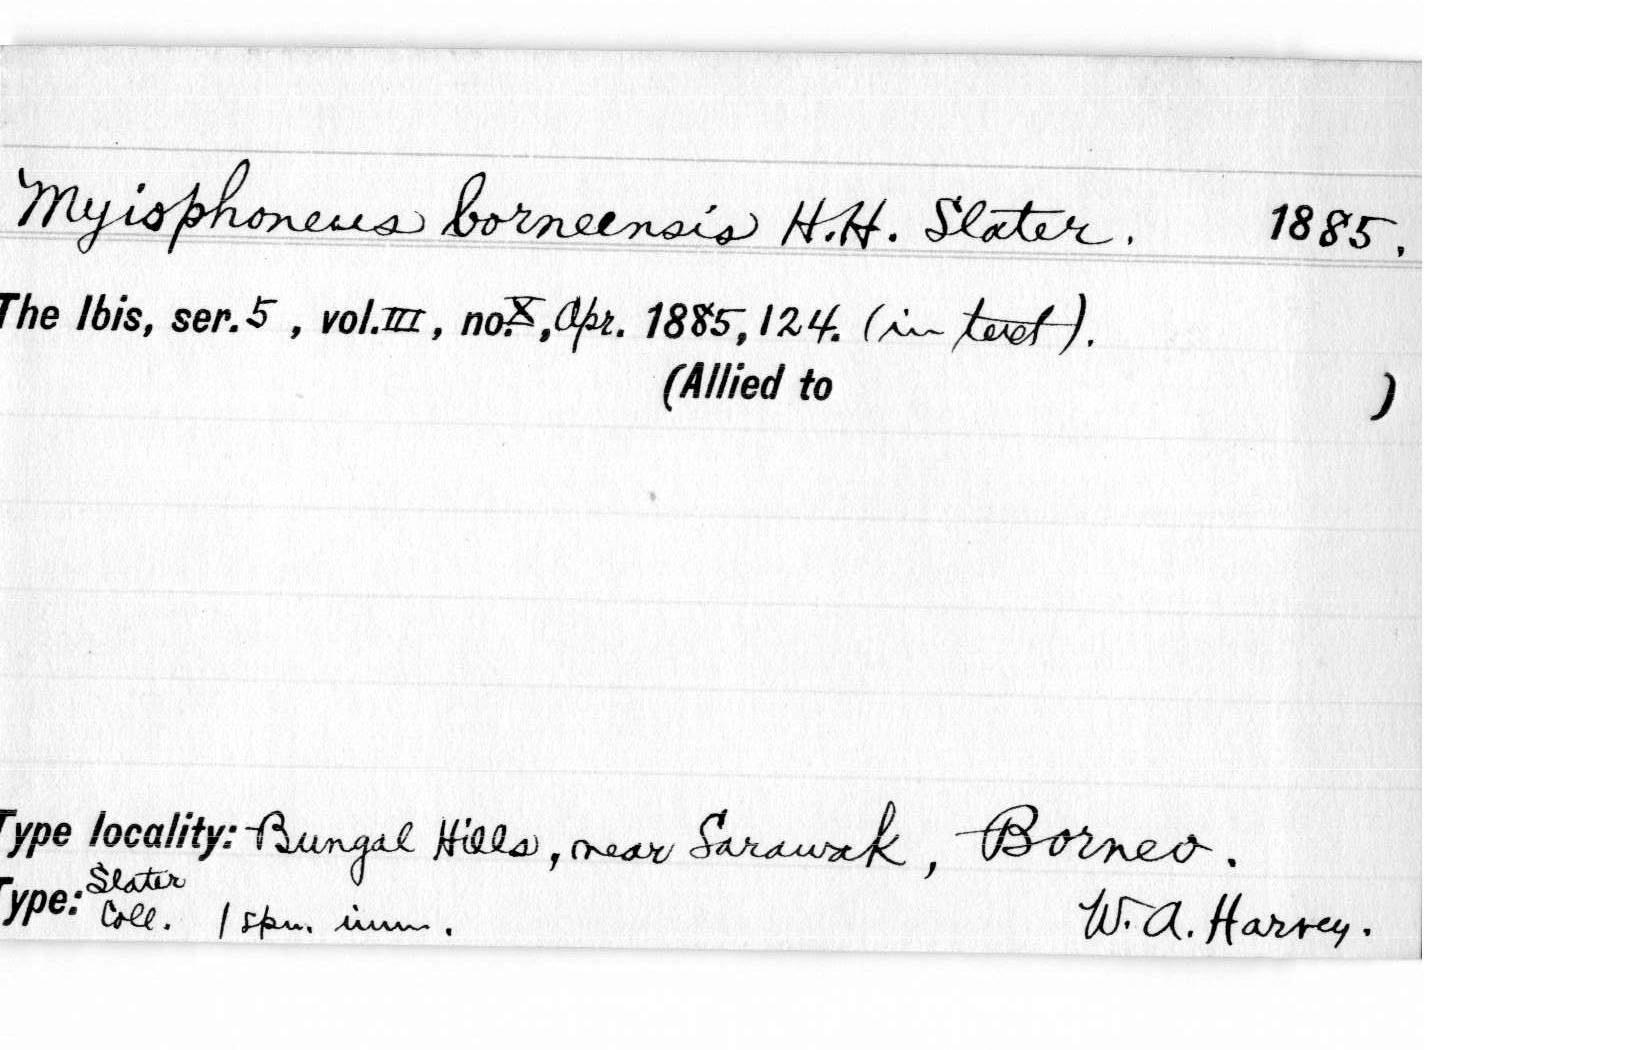 Myiophoneus borneensis H.H. Slater. 1885.
The Ibis, ser. 5, vol. III, no. X, Apr. 1885, 124. (in text).
(Allied to )
Type locality: Bungal Hills, near Sarawak, Borneo.
Type: Slater Coll. 1 spm. imm. W. A. Harvey.